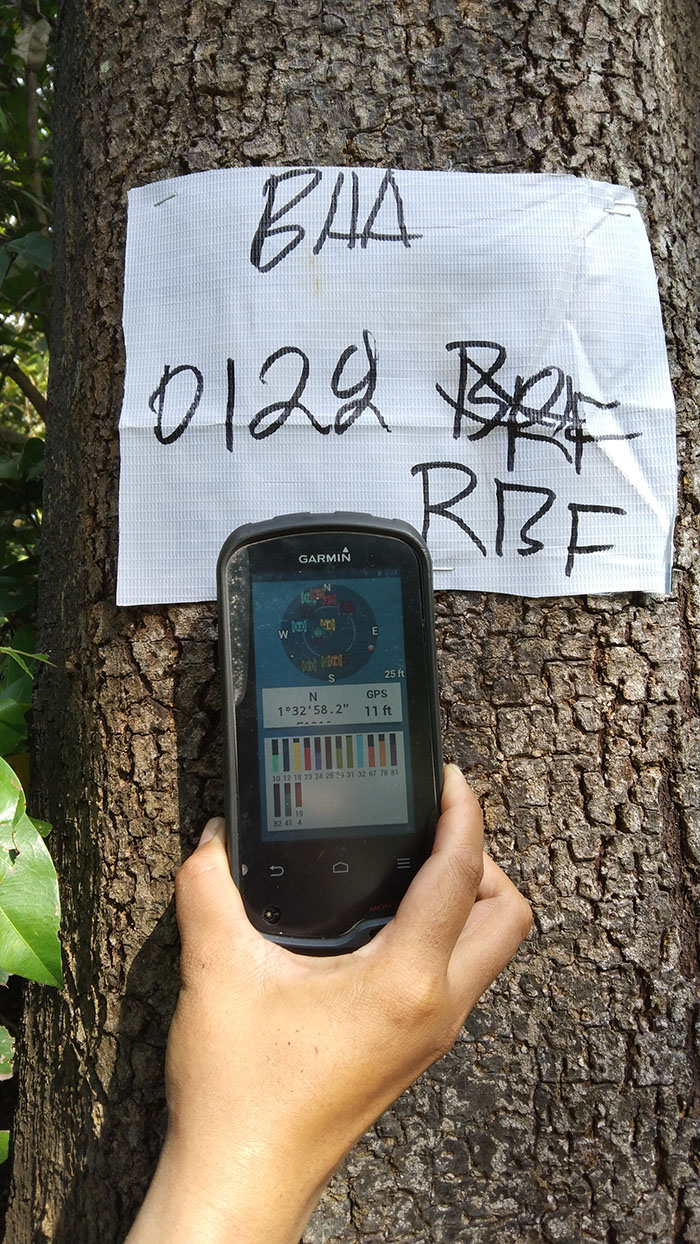 BHA
0129
RBF
GARMIN
N
W E
S
25 ft
N GPS
1°32'58.2" 11 ft
10 12 18 23 24 25 29 31 32 67 78 81
82 41 4 19